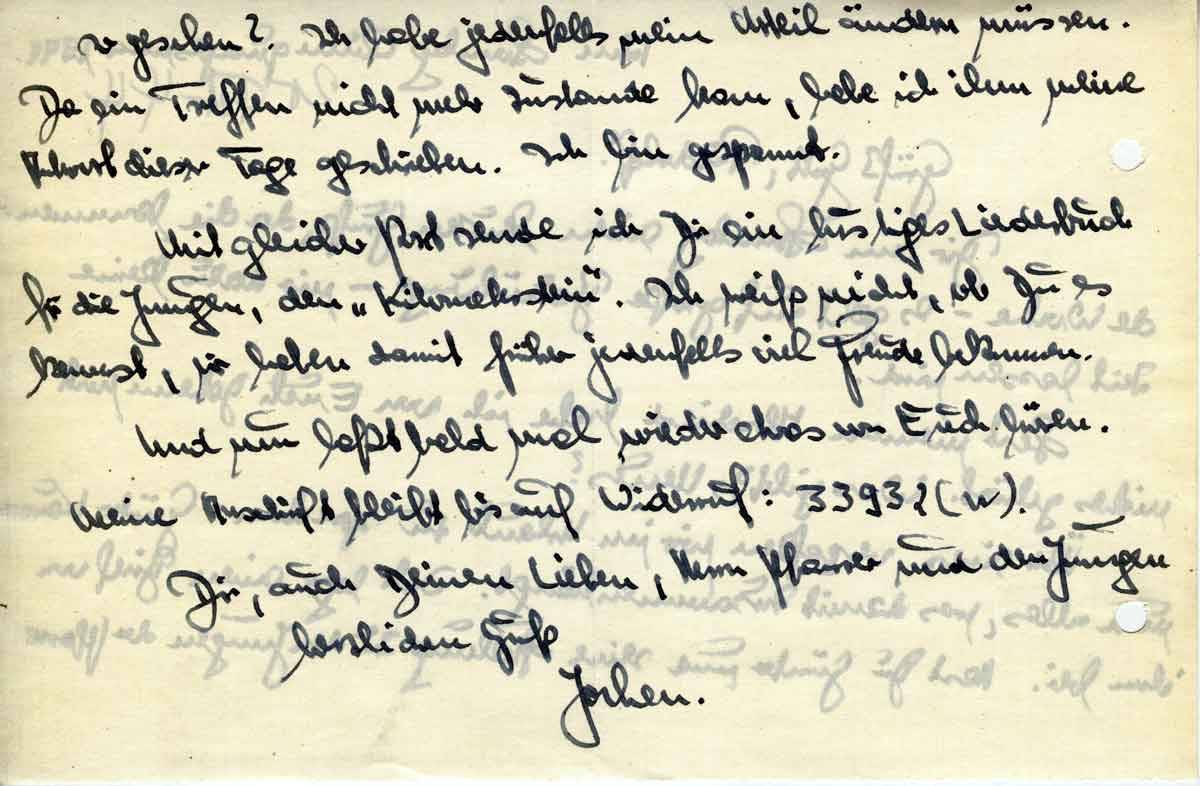 gesehen?. Ich habe jedenfalls mein Urteil ändern müssen.
Da ein Treffen nicht mehr zustande kam, habe ich ihm meine
Antwort dieser Tage geschrieben. Ich bin gespannt.
Mit gleicher Post sende ich Dir ein lustiges Liederbuch
für die Jungen, den „Kilometerstein". Ich weiß nicht, ob Du es
kennst, wir haben damit früher jedenfalls viel Freude bekommen.
Und nun laßt bald mal wieder etwas von Euch hören.
Meine Anschrift bleibt bis auf Widerruf: 33932 (W).
Dir, auch Deinen Lieben, Herrn Pfarrer und den Jungen
herzlichen Gruß
Jochen.